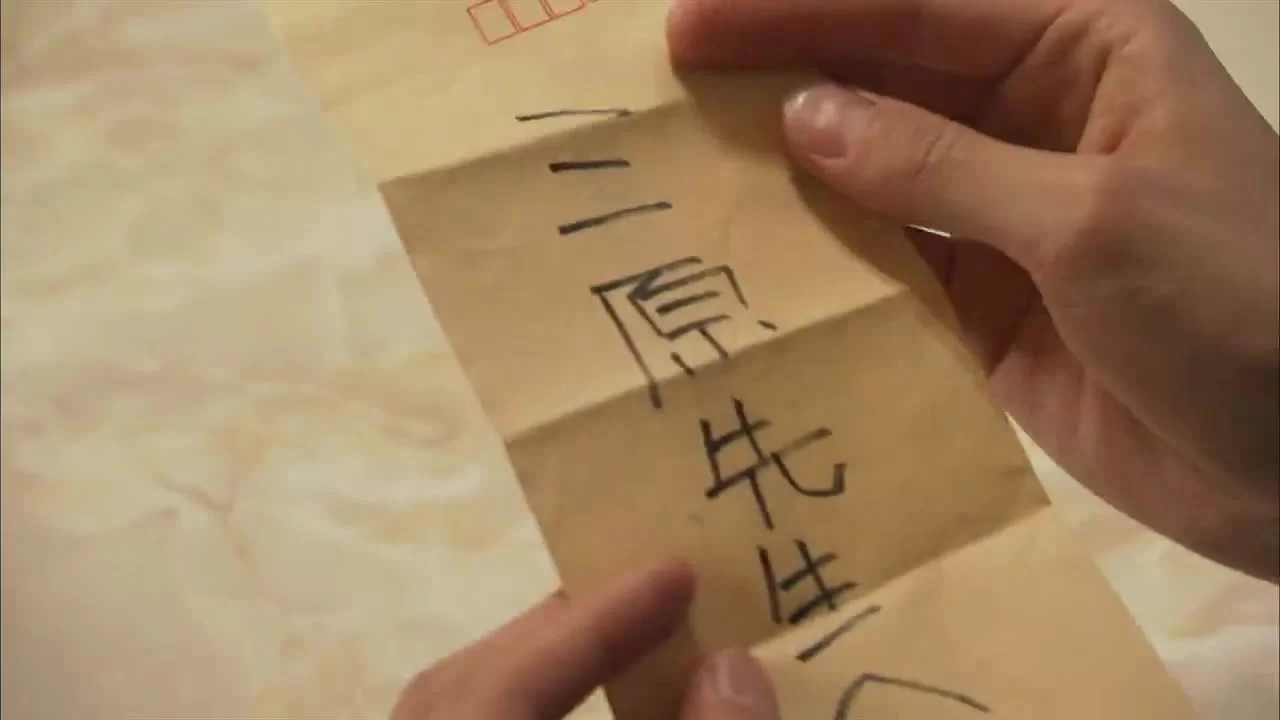 三原先生へ